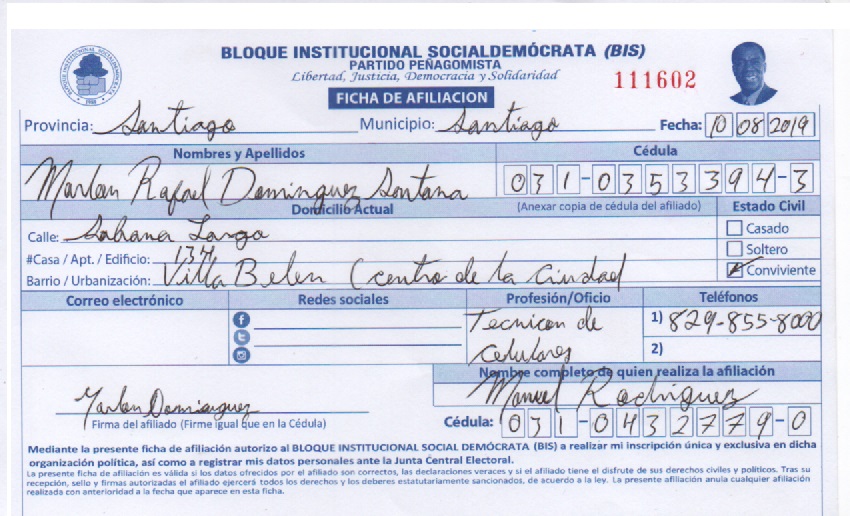 BLOQUE INSTITUCIONAL SOCIALDEMÓCRATA (BIS)
PARTIDO PEÑAGOMISTA
Libertad, Justicia, Democracia y Solidaridad
111602
FICHA DE AFILIACION
Provincia: Santiago Municipio: Santiago Fecha: 10 08 2019
Nombres y Apellidos Cédula
Marlon Rafael Dominguez Santana 031-0353394-3
Domicilio Actual (Anexar copia de cédula del afiliado) Estado Civil
Calle: Sabana Larga Casado
#Casa / Apt. / Edificio: Soltero
Barrio / Urbanización: Villa Belen (centro de la Ciudad Conviviente
Correo electrónico Redes sociales Profesión/Oficio Teléfonos
Tecnicon de 1) 829-855-8000
Celulares 2)
Nombre completo de quien realiza la afiliación
Manuel Rodriguez
Marlon Dominguez
Firma del afiliado (Firme igual que en la Cédula) Cédula: 031-0432779-0
Mediante la presente ficha de afiliación autorizo al BLOQUE INSTITUCIONAL SOCIAL DEMÓCRATA (BIS) a realizar mi inscripción única y exclusiva en dicha
organización política, así como a registrar mis datos personales ante la Junta Central Electoral.
La presente ficha de afiliación es válida si los datos ofrecidos por el afiliado son correctos, las declaraciones veraces y si el afiliado tiene el disfrute de sus derechos civiles y políticos. Tras su
recepción, sello y firmas autorizadas el afiliado ejercerá todos los derechos y los deberes estatutariamente sancionados, de acuerdo a la ley. La presente afiliación anula cualquier afiliación
realizada con anterioridad a la fecha que aparece en esta ficha.